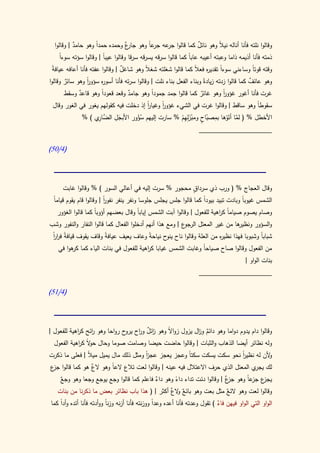 وقالوا نلته فأنا أناله نيلاً وهو نائلٌ كما قالوا جرعه جرعاً وهو جارعٌ وحمده حمداً وهو حامدٌ | وقالوا
ذمته فأنا أذيمه ذاما وعبته أعيبه عاباً كما قالوا سرقه يسرقه سرقا وقالوا عيباً | وقالوا سؤته سوءاً
وقته قوتاً وساءني سوءاً تقديره فعلاً كما قالوا شغلته شغلاً وهو شاغلٌ | وقالوا عفته فأنا أعافه عيافةً
وهو عائفٌ كما قالوا زدته زيادةً وبناء الفعل بناء نلت | وقالوا سرته فأنا أسوره سؤوراً وهو سائرٌ وقالوا
غرت فأنا أغور غؤوراً وهو غائرٌ كما قالوا جمد جموداً وهو جامدٌ وقعد قعوداً وهو قاعدٌ وسقط
سقوطاً وهو ساقط | وقالوا غرت في الشيء غؤوراً وغياراً إذ دخلت فيه كقولهم يغور في الغور وقال
الأخطل % ( لمّا أتوْها بمصباحٍ ومبْزلِهِمْ % سارت إليهم سُؤُور الأبجل الضّاري ) %
(50/4)
وقال العجاج % ( ورب ذي سرداقٍ محجور % سرت إليه في أعالي السور ) % وقالوا غابت
الشمس غيوباً وبادت تبيد بيوداً كما قالوا جلس يجلس جلوسا ونفر ينفر نفوراً | وقالوا قام يقوم قياماً
وصام يصوم صياماً كراهية للفعول | وقالوا آبت الشمس إياباً وقال بعضهم أؤوباً كما قالوا الغؤور
والسؤور ونظيرها من غير المعتل الرجوع | ومع هذا أنهم أدخلوا الفعال كما قالوا النفار والنفور وشب
شباباً وشبوبا فهذا نظيره من العلة وقالوا ناح ينوح نياحة وعاف يعيف عيافةً وقاف يقوف قيافةً فراراً
من الفعول وقالوا صاح صياحاً وغابت الشمس غياباً كراهية للفعول في بنات الياء كما كرهوا في
بنات الواو |
(51/4)
وقالوا دام يدوم دواما وهو دائمٌ وزال يزول زوالاً وهو زائلٌ وراح يروح رواحا وهو رائح كراهية للفعول |
وله نظائر أيضا الذهاب والثبات | وقالوا حاضت حيضا وصامت صوما وحال حولاً كراهية الفعول
ولأن له نظيراً نحو سكت يسكت سكتاً وعجز يعجز عجزا ومثل ذلك مال يميل ميلاً | فعلى ما ذكرت
لك يجري المعتل الذي حرف الاعتلال فيه عينه | وقالوا لعت تلاع لاعاً وهو لاعٌ هو كما قالوا جزع
يجزع جزعاً وهو جزعٌ | وقالوا دئت تداء داءً وهو داءٌ فاعلم كما قالوا وجع يوجع وجعا وهو وجعٌ
وقالوا لعت وهو لائعٌ مثل بعت وهو بائعٌ ولاعٌ أكثر | ( هذا باب نظائر بعض ما ذكرنا من بنات
الواو التي الواو فيهن فاءٌ ) تقول وعدته فأنا أعده وعداً ووزنته فأنا أزنه وزناً ووأدته فأنا أئده وأداً كما